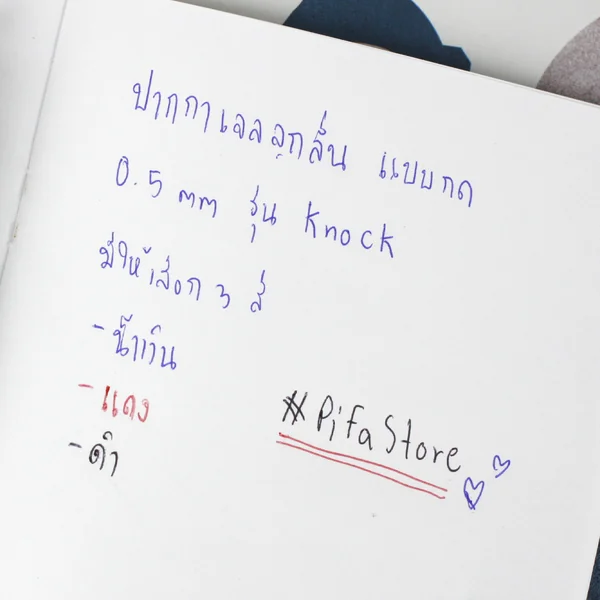 ปากกาเจลลูกลื่น แบบกด
0.5 mm รุ่น Knock
มีให้เลือก 3 สี
- น้ำเงิน
- แดง
- ดำ
#PifaStore